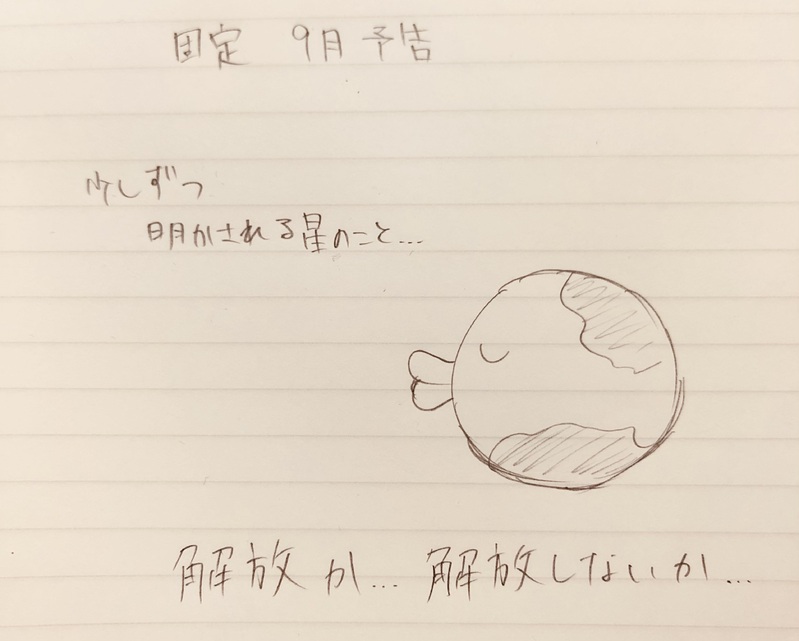 固定 9月予告
少しずつ
明かされる星のこと…
解放か… 解放しないか…